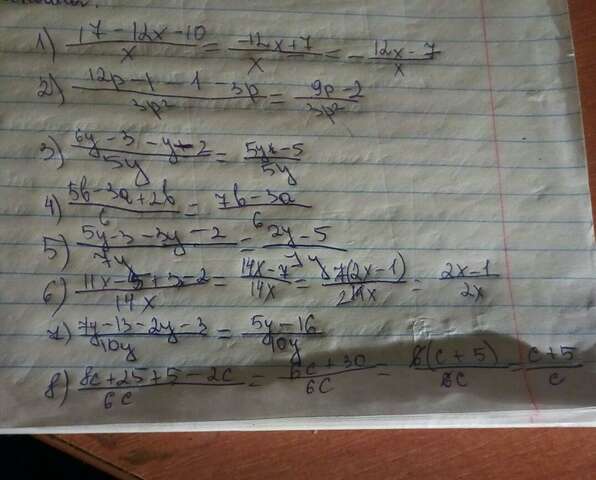 1) (17 - 12x - 10)/x = (-12x + 7)/x = - (12x - 7)/x
2) (12p - 1 - 1 - 3p)/3p² = (9p - 2)/3p²
3) (6y - 3 - y - 2)/5y = (5y - 5)/5y
4) (5b - 3a + 2b)/6 = (7b - 3a)/6
5) (5y - 3 - 3y - 2)/7y = (2y - 5)/7y
6) (11x - 5 + 3x - 2)/14x = (14x - 7)/14x = 7(2x - 1)/14x = (2x - 1)/2x
7) (7y - 13 - 2y - 3)/10y = (5y - 16)/10y
8) (8c + 25 + 5 - 2c)/6c = (6c + 30)/6c = 6(c + 5)/6c = (c + 5)/c